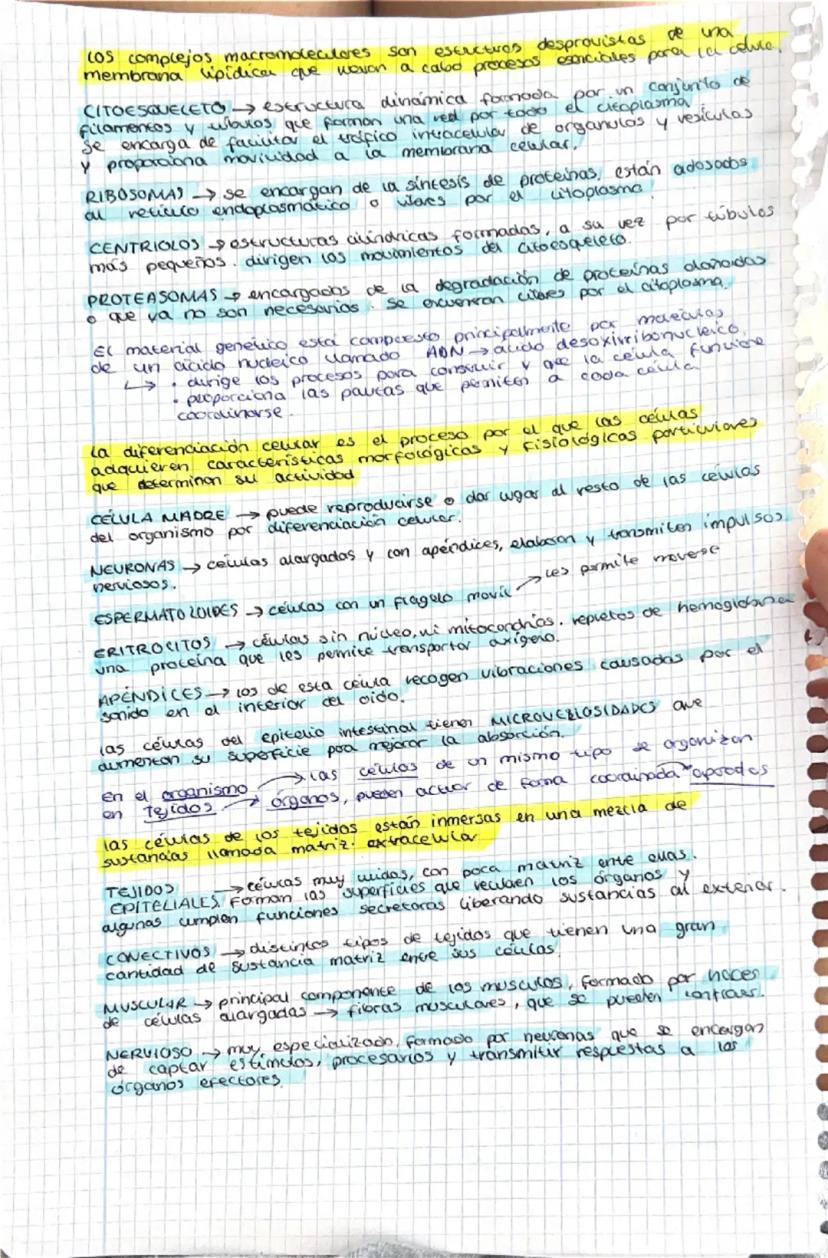 Los complejos macromoleculares son estructuras desprovistas de una
membrana lipídica que llevan a cabo procesos esenciales para la célula.
CITOESQUELETO → estructura dinámica formada por un conjunto de
filamentos y túbulos que forman una red por todo el citoplasma
se encarga de facilitar el tráfico intracelular de orgánulos y vesículas
y proporciona movilidad a la membrana celular.
RIBOSOMAS → se encargan de la síntesis de proteínas, están adosados
al retículo endoplasmático o libres por el citoplasma
CENTRIOLOS → estructuras cilíndricas formadas, a su vez por túbulos
más pequeños. dirigen los movimientos del citoesqueleto.
PROTEASOMAS → encargados de la degradación de proteínas dañadas
o que ya no son necesarias. Se encuentran libres por el citoplasma.
El material genético está compuesto principalmente por moléculas
de un ácido nucleico llamado ADN → ácido desoxirribonucleico.
↳ • dirige los procesos para construir y que la célula funcione
• proporciona las pautas que permiten a cada célula
coordinarse.
La diferenciación celular es el proceso por el que las células
adquieren características morfológicas y fisiológicas particulares
que determinan su actividad
CÉLULA MADRE → puede reproducirse o dar lugar al resto de las células
del organismo por diferenciación celular.
NEURONAS → células alargadas y con apéndices, elaboran y transmiten impulsos
nerviosos.
ESPERMATOZOIDES → células con un flagelo movil → les permite moverse
ERITROCITOS → células sin núcleo, ni mitocondrias. repletos de hemoglobina
una proteína que les permite transportar oxígeno.
APÉNDICES → los de esta célula recogen vibraciones causadas por el
sonido en el interior del oído.
las células del epitelio intestinal tienen MICROVELLOSIDADES que
aumentan su superficie para mejorar la absorción.
en el organismo → las células de un mismo tipo se organizan
en tejidos → órganos, pueden actuar de forma coordinada → aparatos
las células de los tejidos están inmersas en una mezcla de
sustancias llamada matriz extracelular
TEJIDOS → células muy unidas, con poca matriz entre ellas.
EPITELIALES Forman las superficies que recubren los órganos y
algunas cumplen funciones secretoras liberando sustancias al exterior.
CONECTIVOS → distintos tipos de tejidos que tienen una gran
cantidad de sustancia matriz entre sus células
MUSCULAR → principal componente de los musculos, formado por haces
de células alargadas → fibras musculares, que se pueden contraer.
NERVIOSO → muy especializado, formado por neuronas que se encargan
de captar estímulos, procesarlos y transmitir respuestas a los
órganos efectores